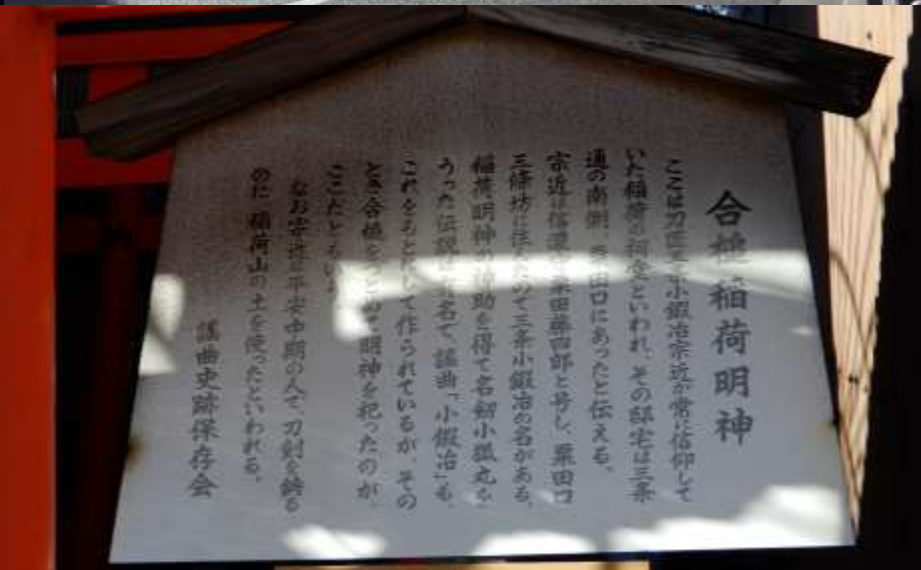 合槌稲荷明神
ここは刀匠三条小鍛冶宗近が常に信仰して
いた稲荷の祠堂といわれ、その邸宅は三条
通の南側、粟田口にあったと伝える。
宗近は信濃守粟田藤四郎と号し、粟田口
三條坊に住したので三条小鍛冶の名がある。
稲荷明神の神助を得て名剣小狐丸を
うった伝説は有名で、謡曲「小鍛冶」も、
これをもとにして作られているが、その
とき合槌をつとめて明神を祀ったのが、
ここだともいう。
なお宗近は平安中期の人で、刀剣を鋳る
のに 稲荷山の土を使ったといわれる。
謡曲史跡保存会